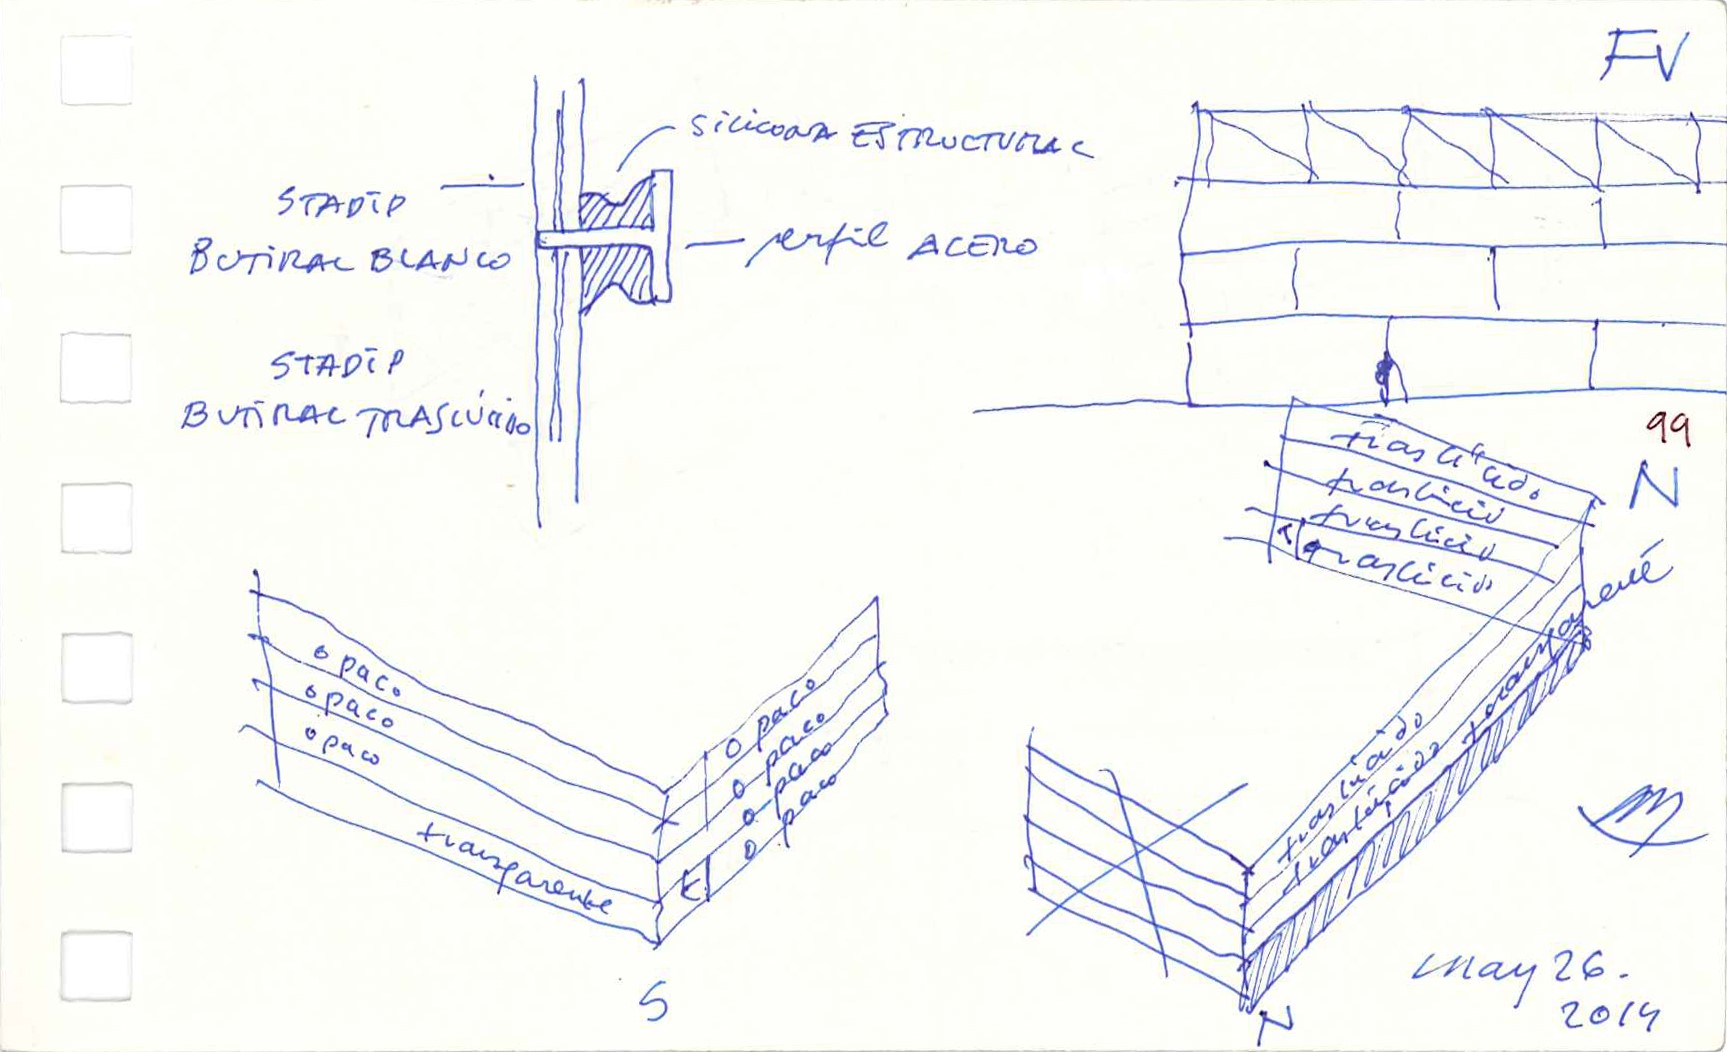 FV
SILICONA ESTRUCTURAL
STADIP
BUTIRAL BLANCO
perfil ACERO
STADIP
BUTIRAL TRASLÚCIDO
99
N
traslúcido
traslúcido
traslúcido
traslúcido
transparente
opaco
opaco
opaco
transparente
opaco
opaco
opaco
opaco
E
S
traslúcido
traslúcido
N
may 26.
2014